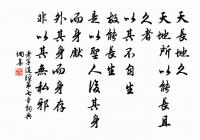 天長地久
天地所以能長且
久者
以其不自生
故能長生
是以聖人後其身
而身先
外其身而身存
非以其無私邪
老子道德經第七章詞典
網集